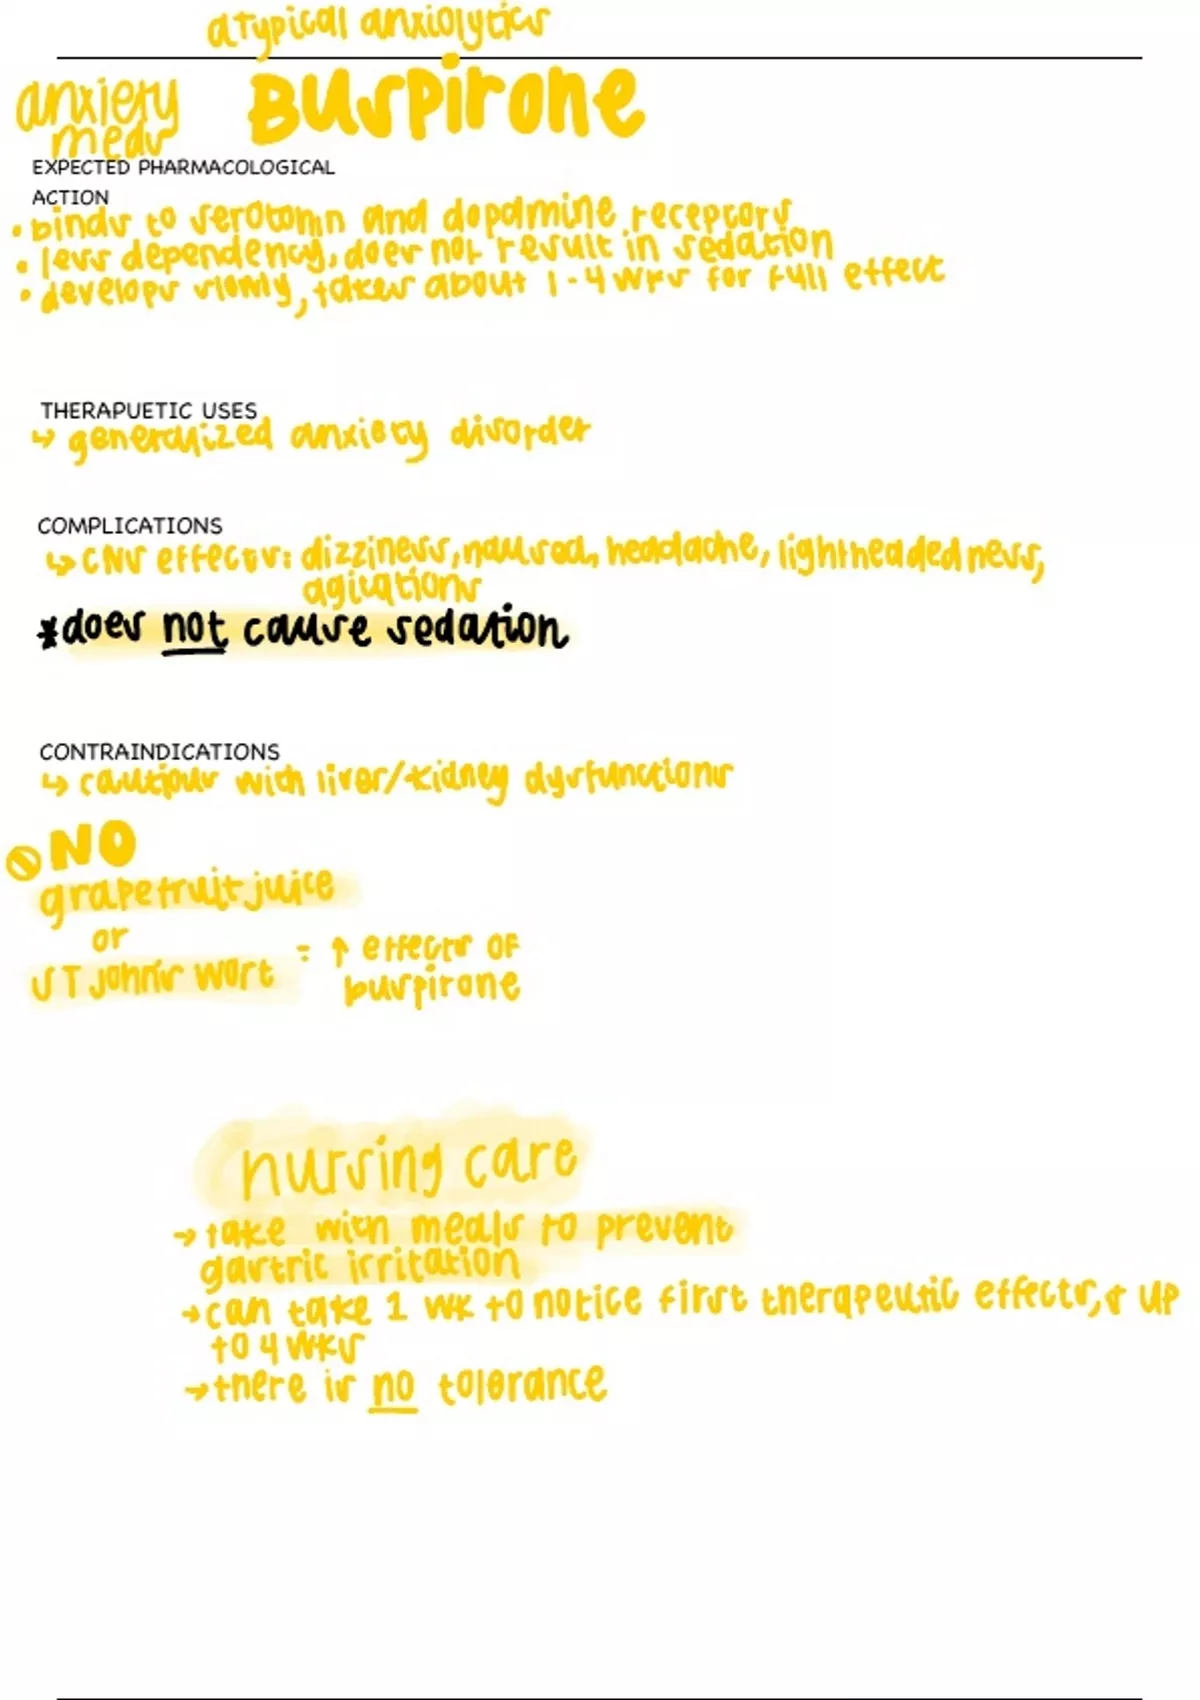 atypical anxiolytics
anxiety
meds
Buspirone
EXPECTED PHARMACOLOGICAL
ACTION
• binds to serotonin and dopamine receptors
• less dependency, does not result in sedation
• develops slowly, takes about 1-4 wks for full effect
THERAPUETIC USES
↳ generalized anxiety disorder
COMPLICATIONS
↳ CNS effects: dizziness, nausea, headache, lightheadedness,
agitations
*does not cause sedation
CONTRAINDICATIONS
↳ cautious with liver/kidney dysfunctions
NO
grapefruit juice
or
ST John's Wort
= ↑ effects of
buspirone
nursing care
→ take with meals to prevent
gastric irritation
→ can take 1 wk to notice first therapeutic effects, & up
to 4 wks
→ there is no tolerance